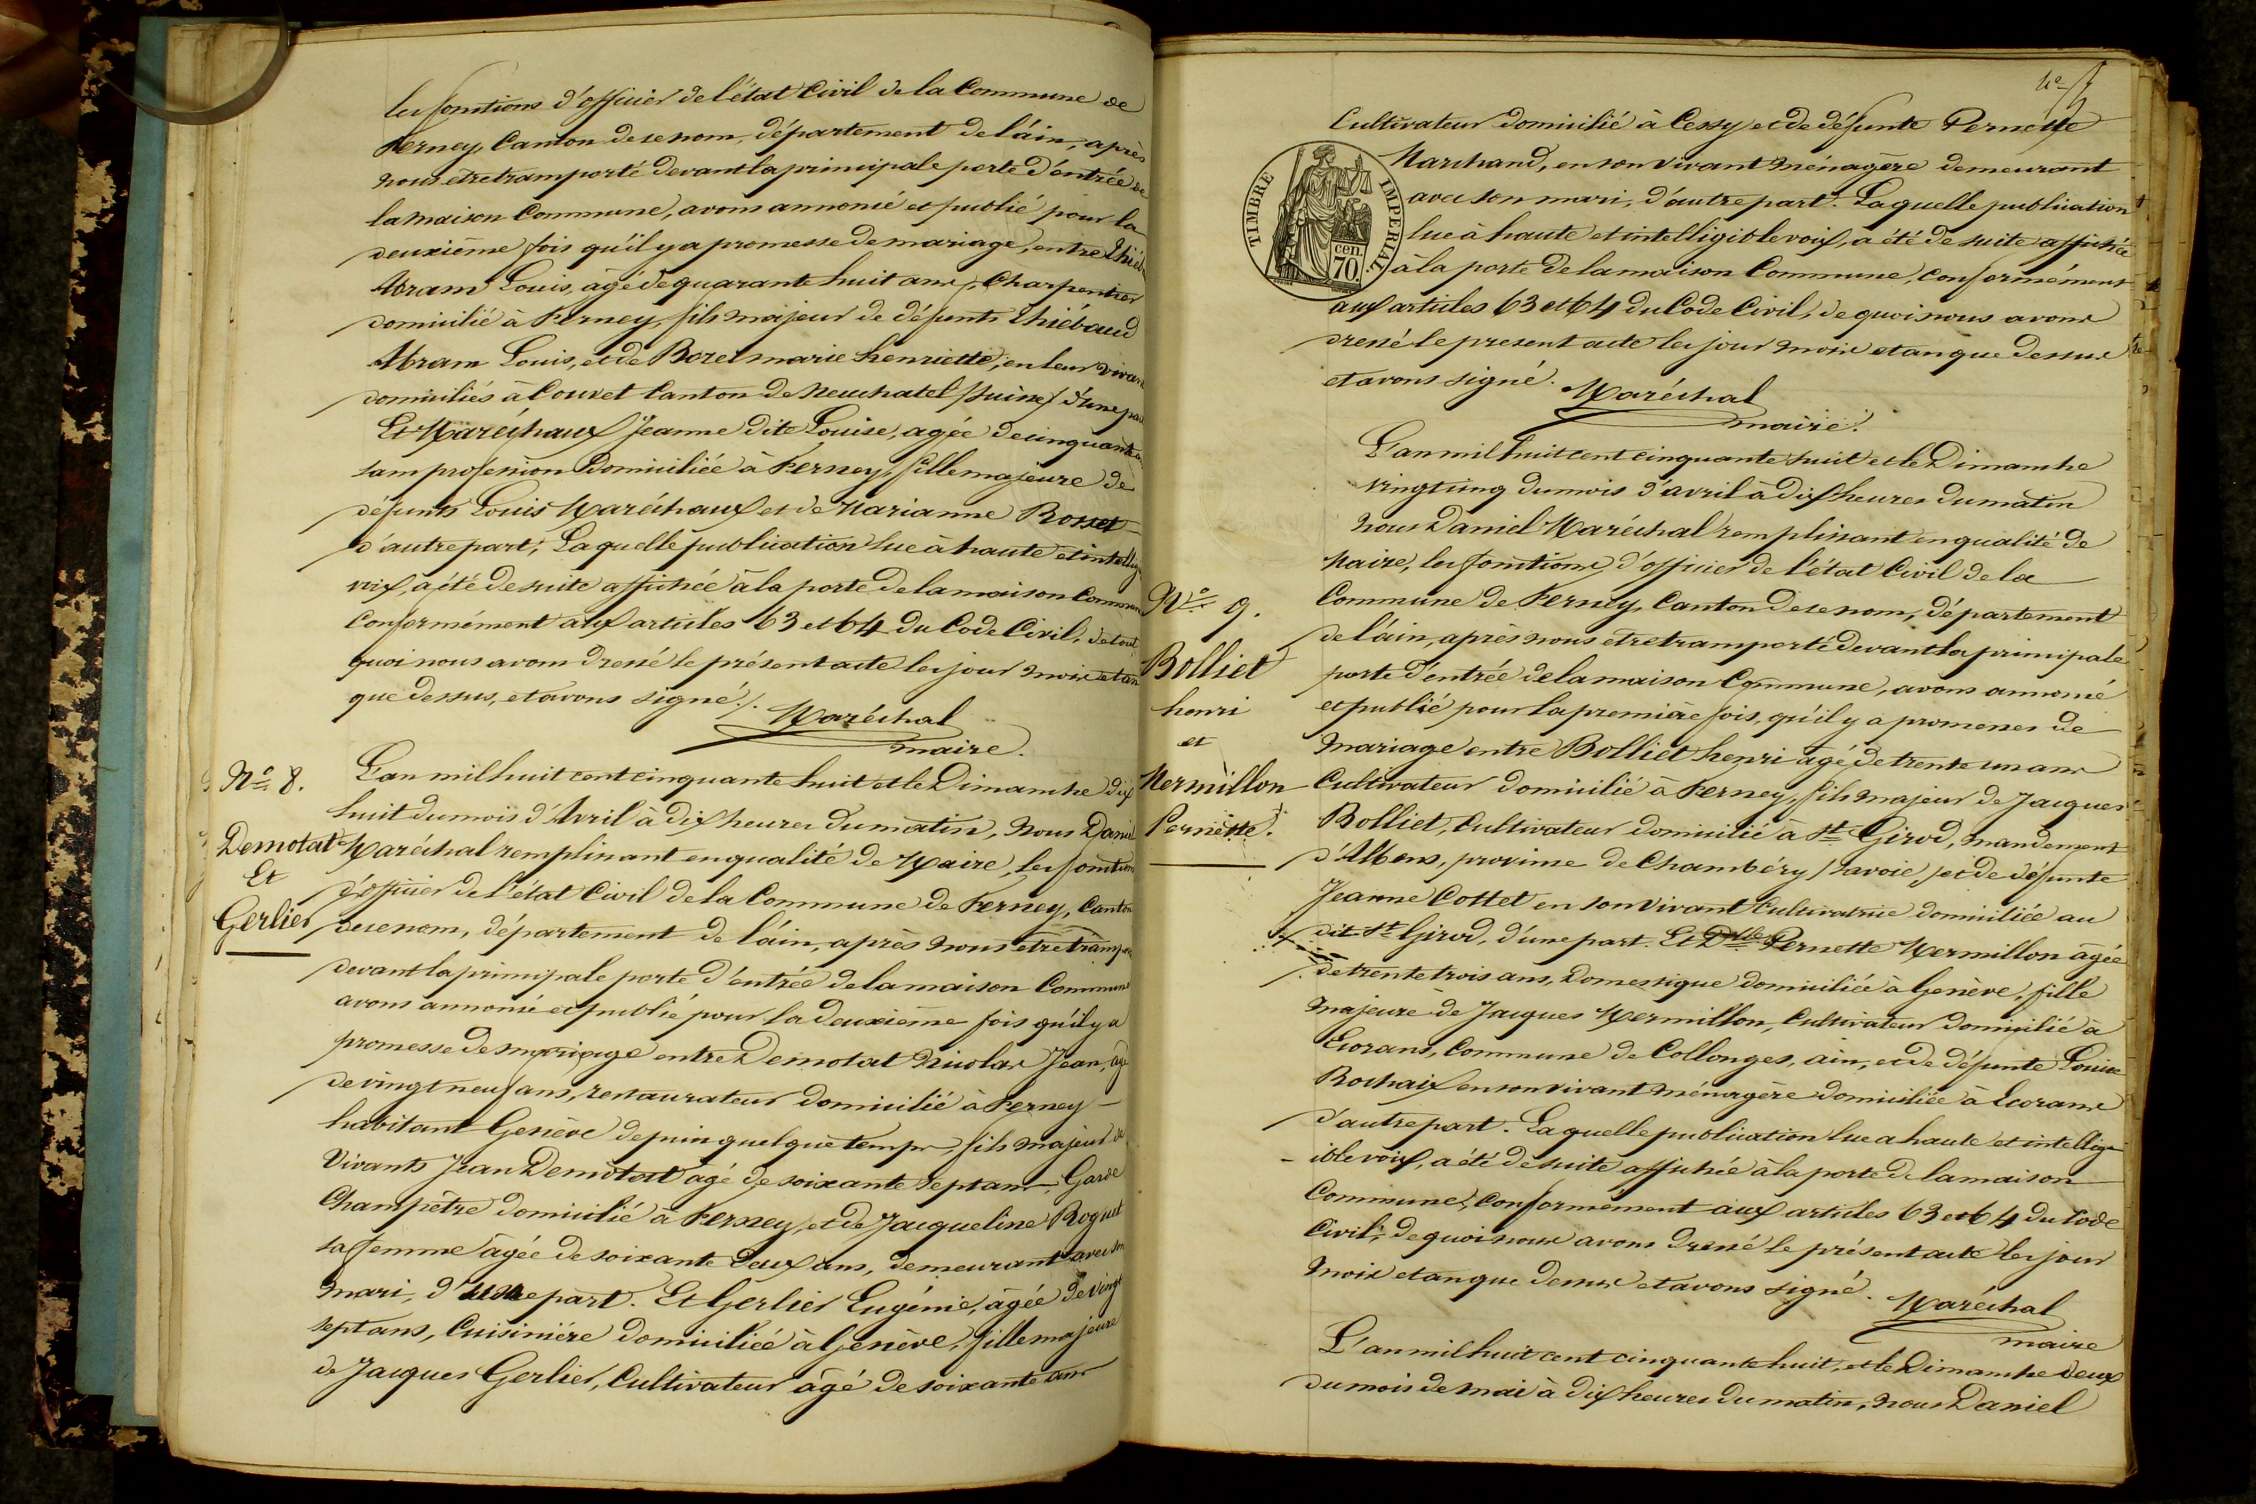 les fonctions d'officier de l'état Civil de la Commune de
Ferney, Canton de ce nom, département de l'áin, après
nous être transporté devant la principale porte d'entrée de
la maison Commune, avons annoncé et publié pour la
deuxième fois qu'il y a promesse de mariage, entre
Abram Louis, âgé de quarante huit ans, Charpentier
domicilié à Ferney, fils majeur de défunts Thiébaud
Abram Louis, et de Borel marie henriette, en leur vivant
domiciliés à Couvet Canton de Neuchatel (suisse) d'une part
Et Maréchaux Jeanne dite Louise, agée de cinquante
sans profession domiciliée à Ferney, fille majeure de
défunts Louis Maréchaux et de Marianne Rosset
d'autre part; Laquelle publication lue à haute et intellig
voix, a été de suite affichée à la porte de la maison Commune
Conformément aux articles 63 et 64 du Code Civil, de tout
quoi nous avons dressé le présent acte les jour mois et an
que dessus, et avons signé./.
Maréchal
maire.
No 8.
Demotat
Et
Gerlier
L'an mil huit cent cinquante huit et le Dimanche dix
huit du mois d'Avril à dix heures du matin, Nous Daniel
Maréchal remplissant en qualité de Maire, les fonctions
d'officier de l'état Civil de la Commune de Ferney, Canton
de ce nom, département de l'áin, après nous être transpor
devant la principale porte d'entrée de la maison Commune
avons annoncé et publié pour la deuxième fois qu'il y a
promesse de mariage entre Demotat Nicolas Jean, âgé
de vingt neuf ans, restaurateur domicilié à Ferney
habitant Genève depuis quelque temps, fils majeur de
Vivants Jean Demotat âgé de soixante sept ans, Garde
Champêtre domicilié à Ferney, et de Jacqueline Roguet
sa femme âgée de soixante deux ans, demeurant avec son
mari, d'une part. Et Gerlier Eugénie, âgée de vingt
sept ans, Cuisinière domiciliée à Genève, fille majeure
de Jacques Gerlier, Cultivateur âgé de soixante ans
4e
Cultivateur domicilié à Cessy et de défunte Pernette
Marchand, en son vivant ménagère demeurant
avec son mari, d'autre part. Laquelle publication
lue à haute et intelligible voix, a été de suite affichée
à la porte de la maison Commune, conformément
aux articles 63 et 64 du Code Civil, de quoi nous avons
dressé le present acte les jour mois et an que dessus
et avons signé.
Maréchal
maire.
TIMBRE IMPERIAL.
cen.
70
No 9.
Bolliet
henri
et
Mermillon
Pernette.
L'an mil huit cent cinquante huit et le Dimanche
vingt cinq du mois d'avril à dix heures du matin
Nous Daniel Maréchal remplissant en qualité de
Maire, les fonctions d'officier de l'état Civil de la
Commune de Ferney, Canton de ce nom, département
de l'áin, après nous être transporté devant la principale
porte d'entrée de la maison Commune, avons annoncé
et publié pour la première fois, qu'il y a promesses de
mariage entre Bolliet henri âgé de trente un ans
Cultivateur domicilié à Ferney, fils majeur de Jacques
Bolliet, Cultivateur domicilié à St Girod, mandement
d'Albens, province de Chambéry (Savoie) et de défunte
Jeanne Cottet en son vivant Cultivatrice domiciliée au
dit St Girod, d'une part. Et Dlle Pernette Mermillon âgée
de trente trois ans, domestique domiciliée à Genève, fille
majeure de Jacques Mermillon, Cultivateur domicilié à
Ecorans, Commune de Collonges, ain, et de défunte Louise
Rochaix en son vivant ménagère domiciliée à Ecorans
d'autre part. Laquelle publication lue a haute et intellig-
ible voix, a été de suite affichée à la porte de la maison
Commune, conformément aux articles 63 et 64 du Code
Civil, de quoi nous avons dressé le présent acte les jour
mois et an que dessus et avons signé.
Maréchal
maire
L'an mil huit cent cinquante huit, et le Dimanche deux
du mois de mai à dix heures du matin, nous Daniel